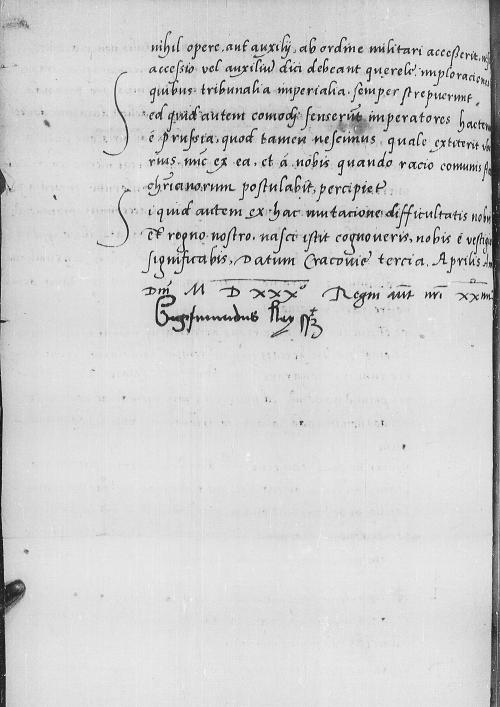 nihil opere, aut auxilij, ab ordine militari accesserit, nisi
accessio vel auxiliu dici debeant querele, imploraciones
quibus tribunalia imperialia semper strepuerunt
Sed quid autem comodi senserut imperatores hacten
e prussia, quod tamen nescimus, quale extiterit
rius. nuc ex ea, et a nobis quando racio comunis
christianorum postulabit, percipiet
Si quid autem ex hac mutacione difficultatis nobis
et regno nostro, nasci istic cognoveris, nobis e vestigio
significabis, Datum Cracovie tercia, Aprilis
Dni M D XXX° Regni aut nri XX
Sigismundus Rex sst